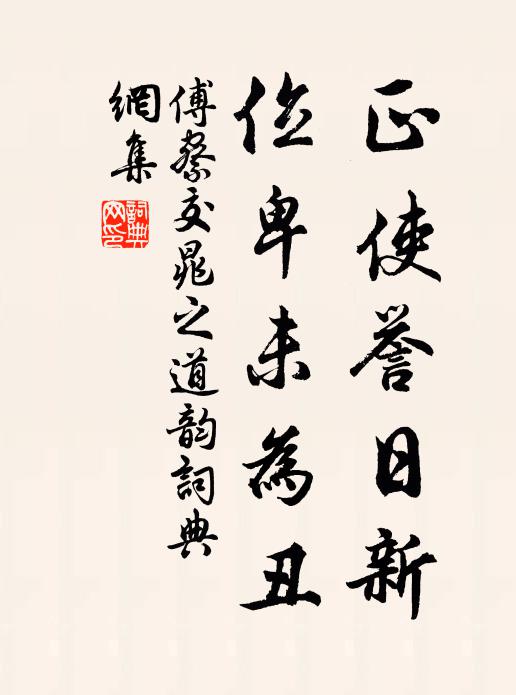 正使誉日新
位卑未為丑
傅察次晁之道韵詞典
網集
詞典網印